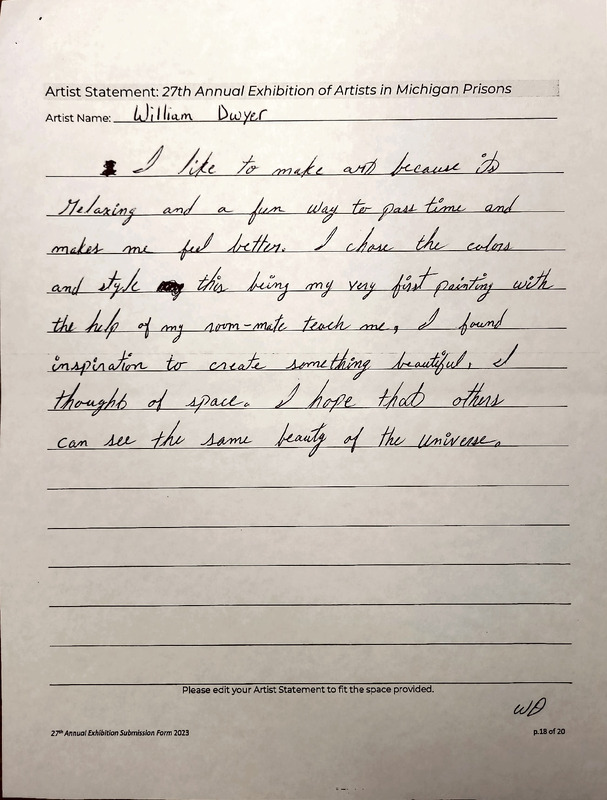 Artist Statement: 27th Annual Exhibition of Artists in Michigan Prisons
Artist Name: William Dwyer
I like to make art because its
relaxing and a fun way to pass time and
makes me feel better. I chose the colors
and style this being my very first painting with
the help of my room-mate teach me, I found
inspiration to create something beautiful, I
thought of space. I hope that others
can see the same beauty of the universe.
Please edit your Artist Statement to fit the space provided.
WD
27th Annual Exhibition Submission Form 2023
p.18 of 20